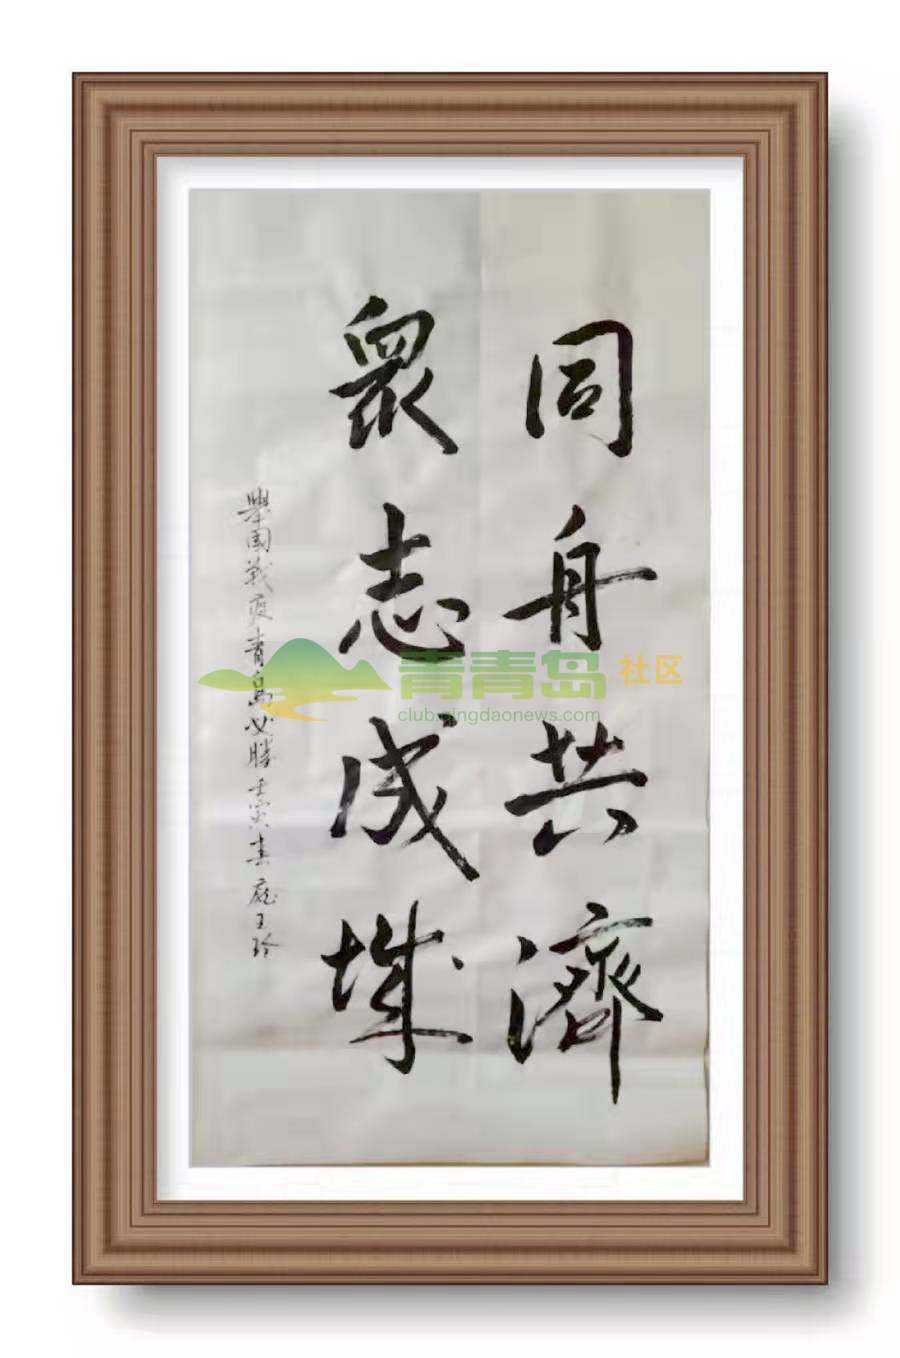 同舟共濟
眾志成城
舉國戰疫青島必勝壬寅春庭玉珍
青青岛 社区
club.qingdaonews.com